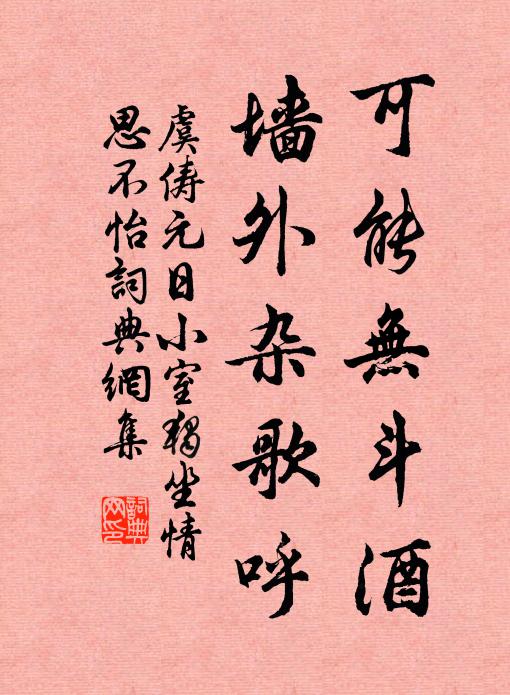 可能無斗酒
墙外杂歌呼
虞俦元日小室獨坐情
思不怡詞典網集
詞典网印